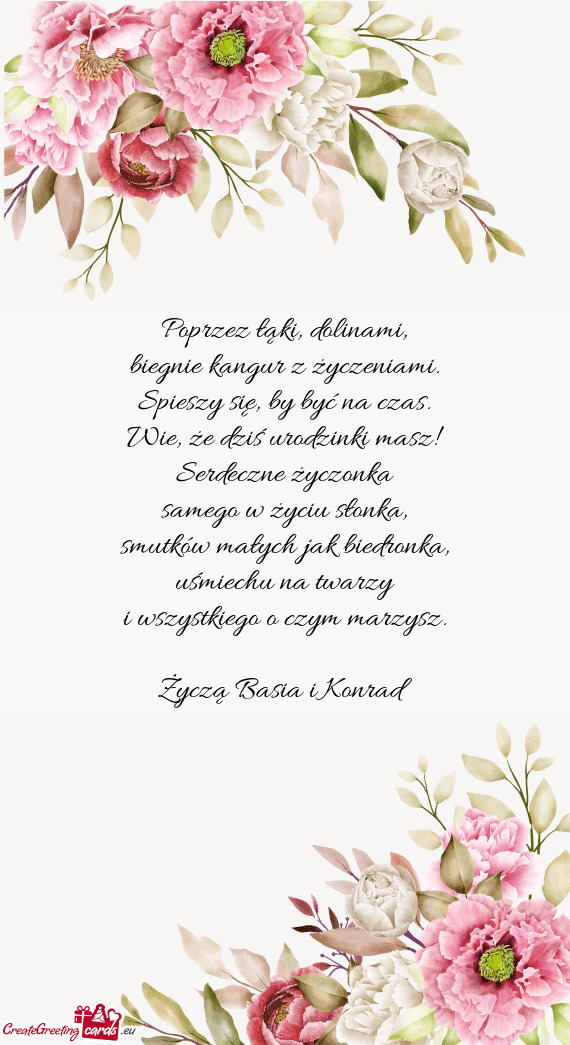 Poprzez łąki, dolinami,
biegnie kangur z życzeniami.
Spieszy się, by być na czas.
Wie, że dziś urodzinki masz!
Serdeczne życzonka
samego w życiu słonka,
smutków małych jak biedronka,
uśmiechu na twarzy
i wszystkiego o czym marzysz.
Życzą Basia i Konrad
CreateGreeting cards .eu